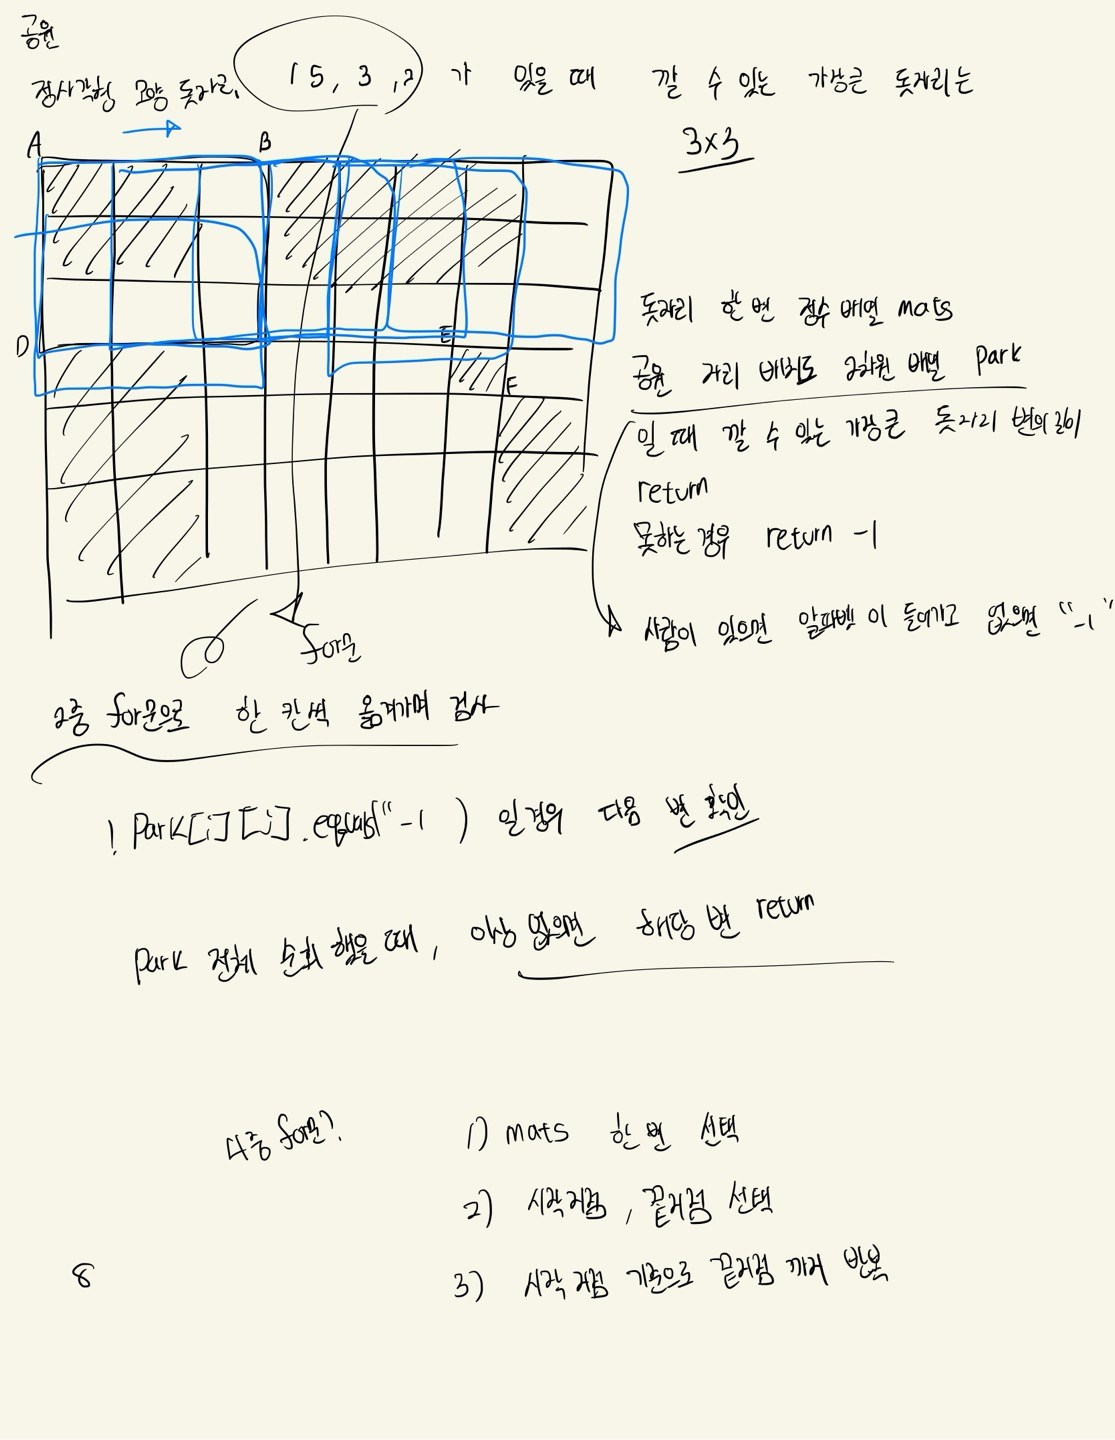 공원
정사각형 모양 돗자리, 15, 3, 2 가 있을 때 깔 수 있는 가장큰 돗자리는
3x3
A B
D
E
F
돗자리 한변 정수 배열 mats
공원 자리 배치도 2차원 배열 Park
일 때 깔 수 있는 가장큰 돗자리 변의 길이
return
못하는 경우 return -1
사람이 있으면 알파벳 이 들어가고 없으면 "-1"
for문
2중 for문으로 한 칸씩 옮겨가며 검사
! Park[i][j].equals("-1 ) 일경우 다음 변 확인
Park 전체 순회 했을 때, 이상 없으면 해당 변 return
4중 for문?
1) mats 한 변 선택
2) 시작지점, 끝지점 선택
3) 시작 지점 기준으로 끝지점 까지 반복
8